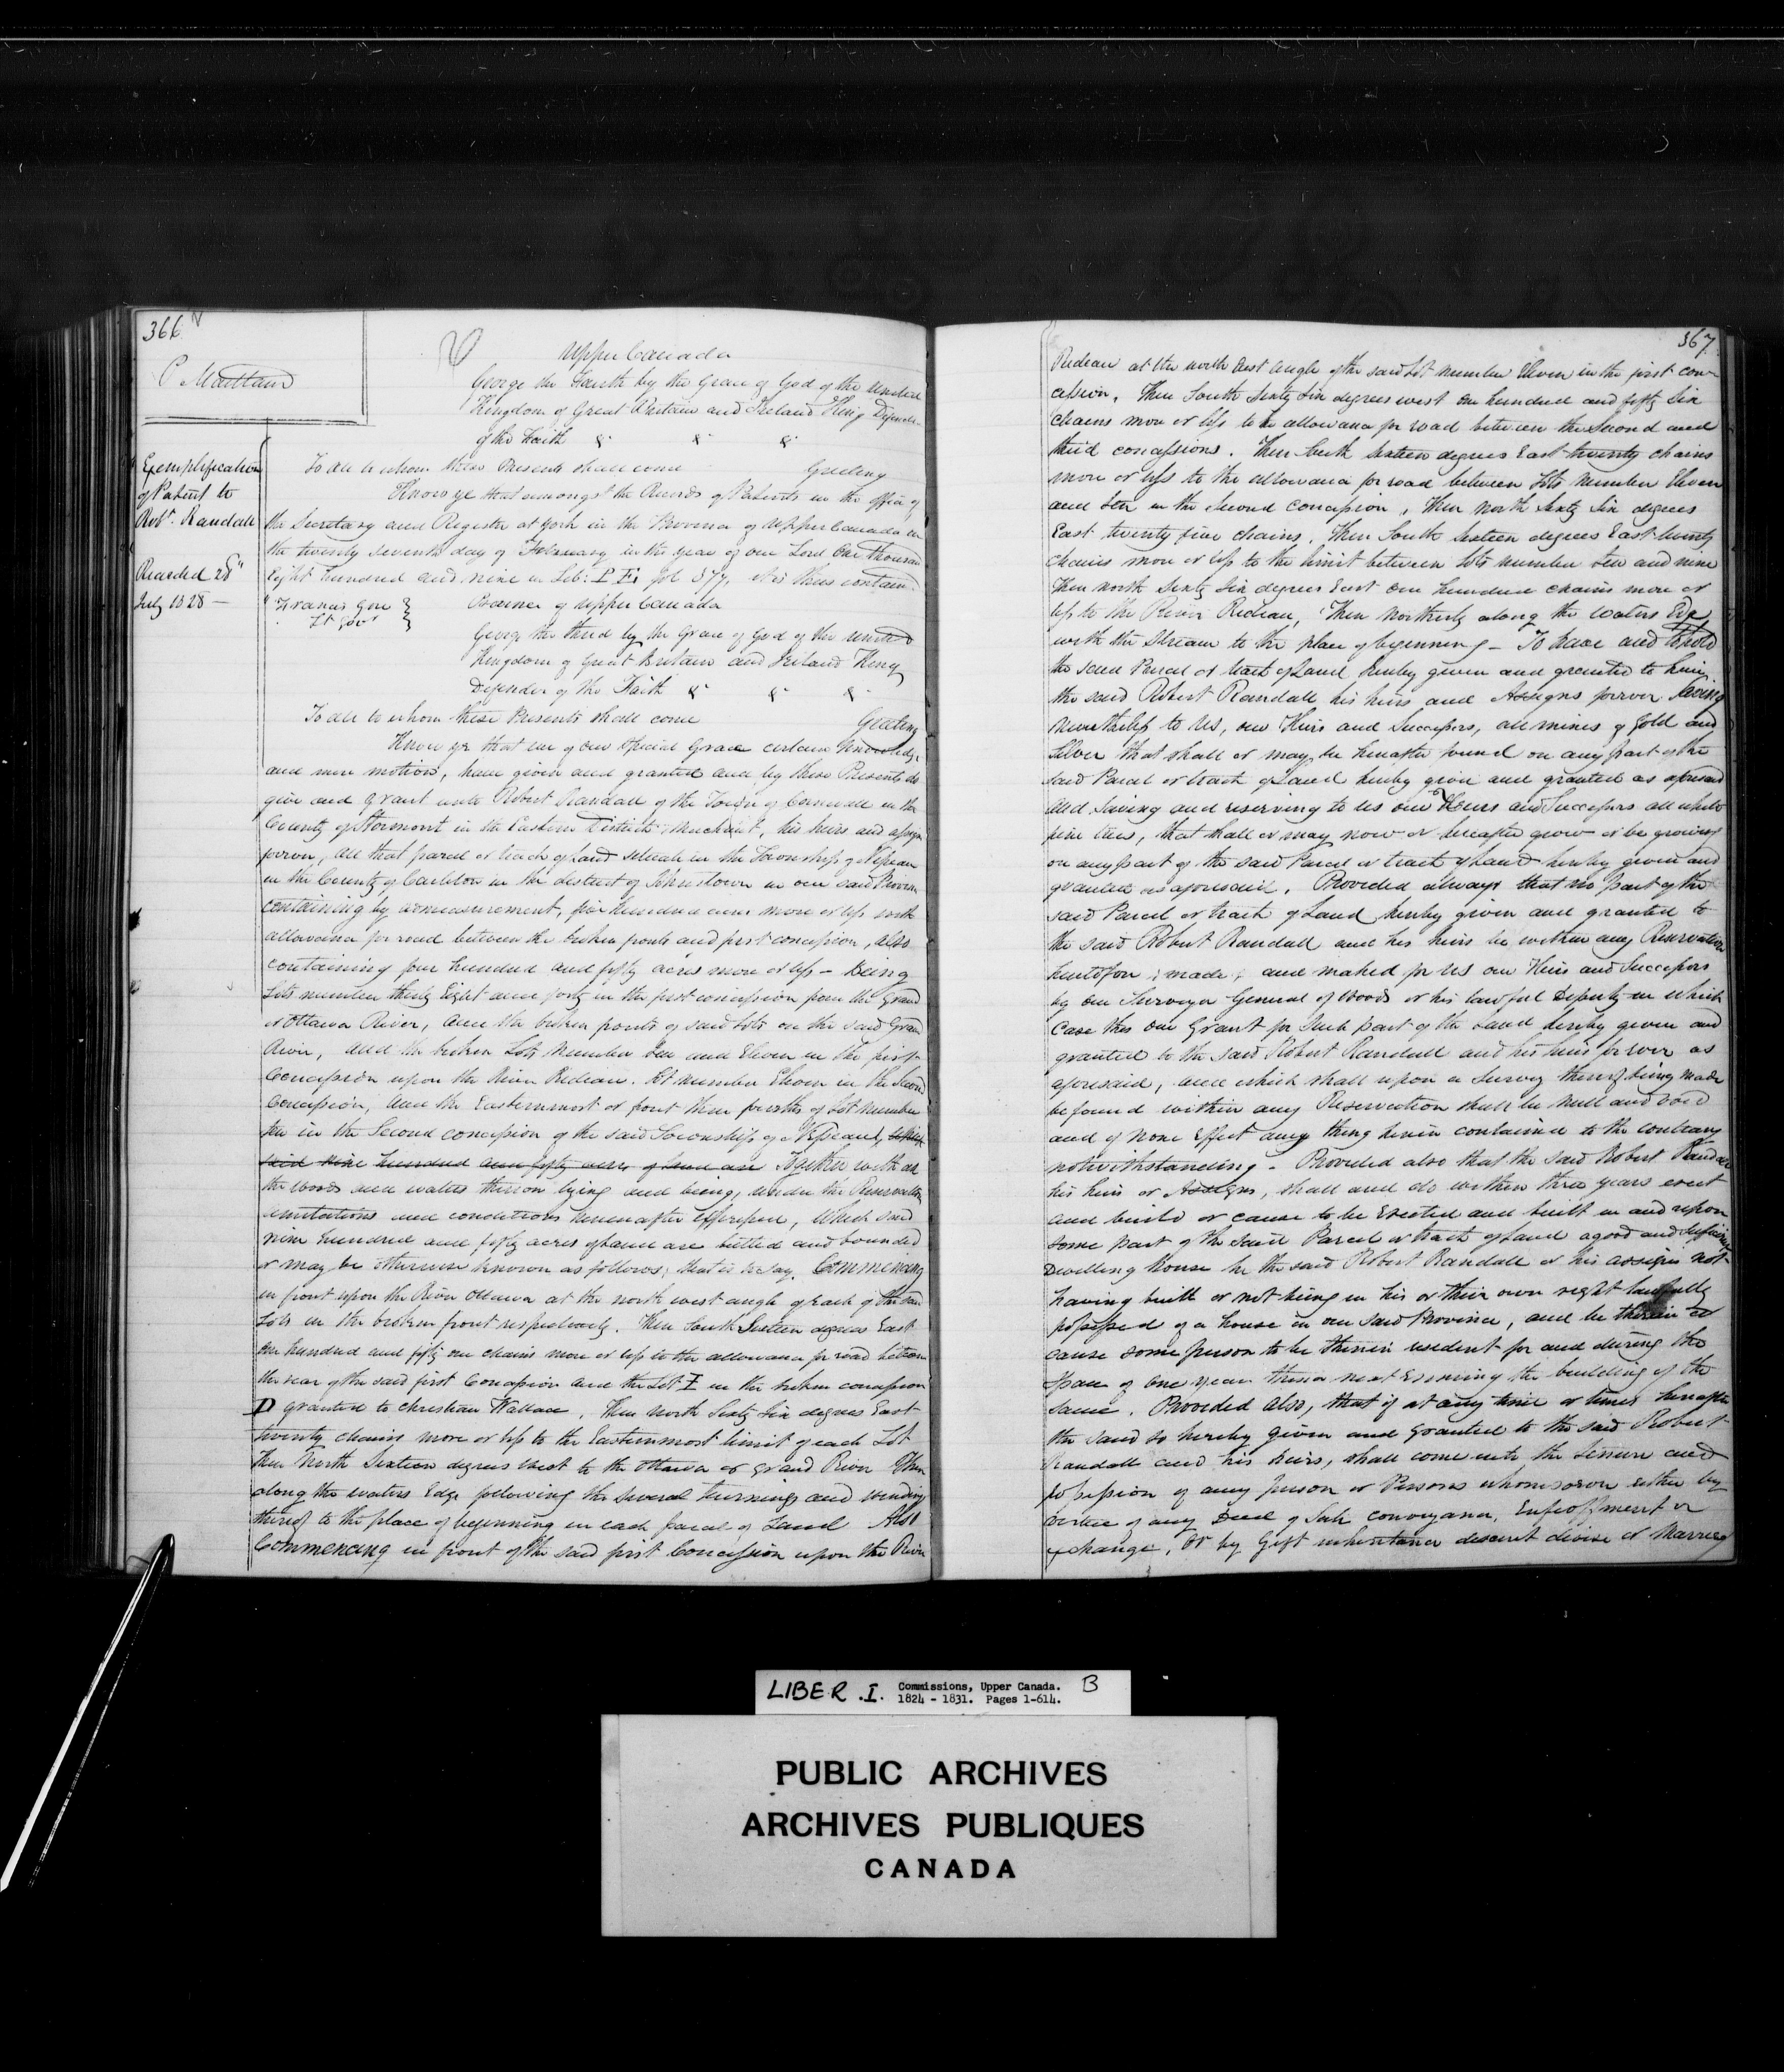 366
P Maitland
Exemplification
of Patent to
Robt. Randall
Recorded 28th
July 1828 —
Upper Canada
George the Fourth by the Grace of God of the United
Kingdom of Great Britain and Ireland King Defender
of the Faith &c &c &c
To all to whom these Presents shall come Greeting
Know ye that amongst the Records of Patents in the Office of
the Secretary and Register at York in the Province of Upper Canada on
the twenty seventh day of February in the year of our Lord One thousand
Eight hundred and nine in Lib: fol 377, it is thus contained
Francis Gore
Lt Govr
Province of Upper Canada
George the third by the Grace of God of the United
Kingdom of Great Britain and Ireland King
Defender of the Faith &c &c &c
To all to whom these Presents shall come Greeting
Know ye that we of our Special Grace certain Knowledge
and mere motion, have given and granted and by these Presents do
give and grant unto Robert Randall of the Town of Cornwall in the
County of Stormont in the Eastern District Merchant, his heirs and assigns
forever, all that parcel or tract of Land situate in the Township of Nepean
in the County of Carleton in the district of Johnstown in our said Province
containing by admeasurement, five hundred acres more or less with
allowance for road between the broken fronts and first concession, also
containing four hundred and fifty acres more or less - being
Lots number thirty Eight and forty in the first concession from the Grand
or Ottawa River, and the broken fronts of said Lots on the said Grand
River, and the broken Lots Number ten and Eleven in the first
Concession upon the River Rideau. Lot number Eleven in the Second
Concession, and the Easternmost or front three fourths of Lot Number
ten in the Second concession of the said Township of Nepean, which
said nine hundred and fifty acres of Land are Together with all
the Woods and waters thereon lying and being, under the Reservations
limitations and conditions hereinafter expressed, Which said
nine hundred and fifty acres of Land are butted and bounded
or may be otherwise known as follows; that is to say, Commencing
in front upon the River Ottawa at the north west angle of each of the said
Lots in the broken front respectively. Then South Sixteen degrees East
one hundred and fifty one chains more or less to the allowance for road between
the rear of the said first Concession and the Lot I in the broken concession
D granted to Christian Wallace. Then North Sixty Six degrees East
twenty chains more or less to the Easternmost limit of each Lot
Then North Sixteen degrees West to the Ottawa or Grand River Then
along the waters Edge following the several turnings and windings
thereof to the place of beginning in each parcel of Land Also
Commencing in front of the said first Concession upon the River
367
Rideau at the north East angle of the said Lot number Eleven in the first con-
cession, Then South Sixty Six degrees west One hundred and fifty Six
Chains more or less to the allowance for road between the Second and
third concessions. Then South Sixteen degrees East twenty chains
more or less to the allowance for road between Lots Number Eleven
and ten in the Second Concession, Then North Sixty Six degrees
East twenty five chains. Then South Sixteen degrees East twenty
Chains more or less to the limit between Lots number ten and nine
Then North Sixty Six degrees East one hundred chains more or
less to the River Rideau, Then Northerly along the Waters Edge
with the Stream to the place of beginning - To have and to hold
the said Parcel or tract of Land hereby given and granted to him
the said Robert Randall his heirs and Assigns forever Saving
Nevertheless to Us, our Heirs and Successors, all mines of Gold and
Silver that shall or may be hereafter found on any part of the
said Parcel or tract of Land hereby given and granted as aforesaid
And Saving and reserving to Us our Heirs and Successors all white
pine trees, that shall or may now or hereafter grow or be growing
on any part of the said Parcel or tract of Land hereby given and
granted as aforesaid. Provided always that no part of the
said Parcel or tract of Land hereby given and granted to
the said Robert Randall and his heirs be within any Reservation
heretofore made and marked for Us our Heirs and Successors
by our Surveyor General of Woods or his lawful Deputy in which
Case this our Grant for such part of the Land hereby given and
granted to the said Robert Randall and his heirs forever as
aforesaid, and which shall upon a Survey thereof being made
be found within any Reservation shall be null and void
and of none Effect any thing herein contained to the contrary
notwithstanding - Provided also that the said Robert Randall
his heirs or Assigns, shall and do within three years erect
and build or cause to be Erected and built in and upon
some part of the said Parcel or tract of Land a good and sufficient
Dwelling House he the said Robert Randall or his assigns not
having built or not being in his or their own right lawfully
possessed of a house in our said Province, and be therein or
cause some person to be therein resident for and during the
space of one year thence next Ensuing the building of the
same. Provided also, that if at any time or times hereafter
the Land so hereby given and granted to the said Robert
Randall and his heirs, shall come into the seisure and
possession of any person or Persons whomsoever either by
virtue of any Deed of Sale conveyance, Enfeoffment or
exchange, or by Gift inheritance descent devise or Marriage
LIBER .I. Commissions, Upper Canada. B
1824 - 1831. Pages 1-614.
PUBLIC ARCHIVES
ARCHIVES PUBLIQUES
CANADA